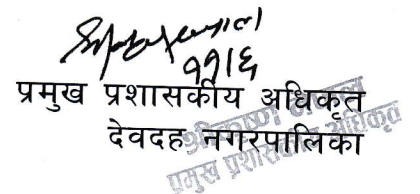 ११।६
प्रमुख प्रशासकीय अधिकृत
देवदह नगरपालिका
प्रमुख प्रशासकीय अधिकृत